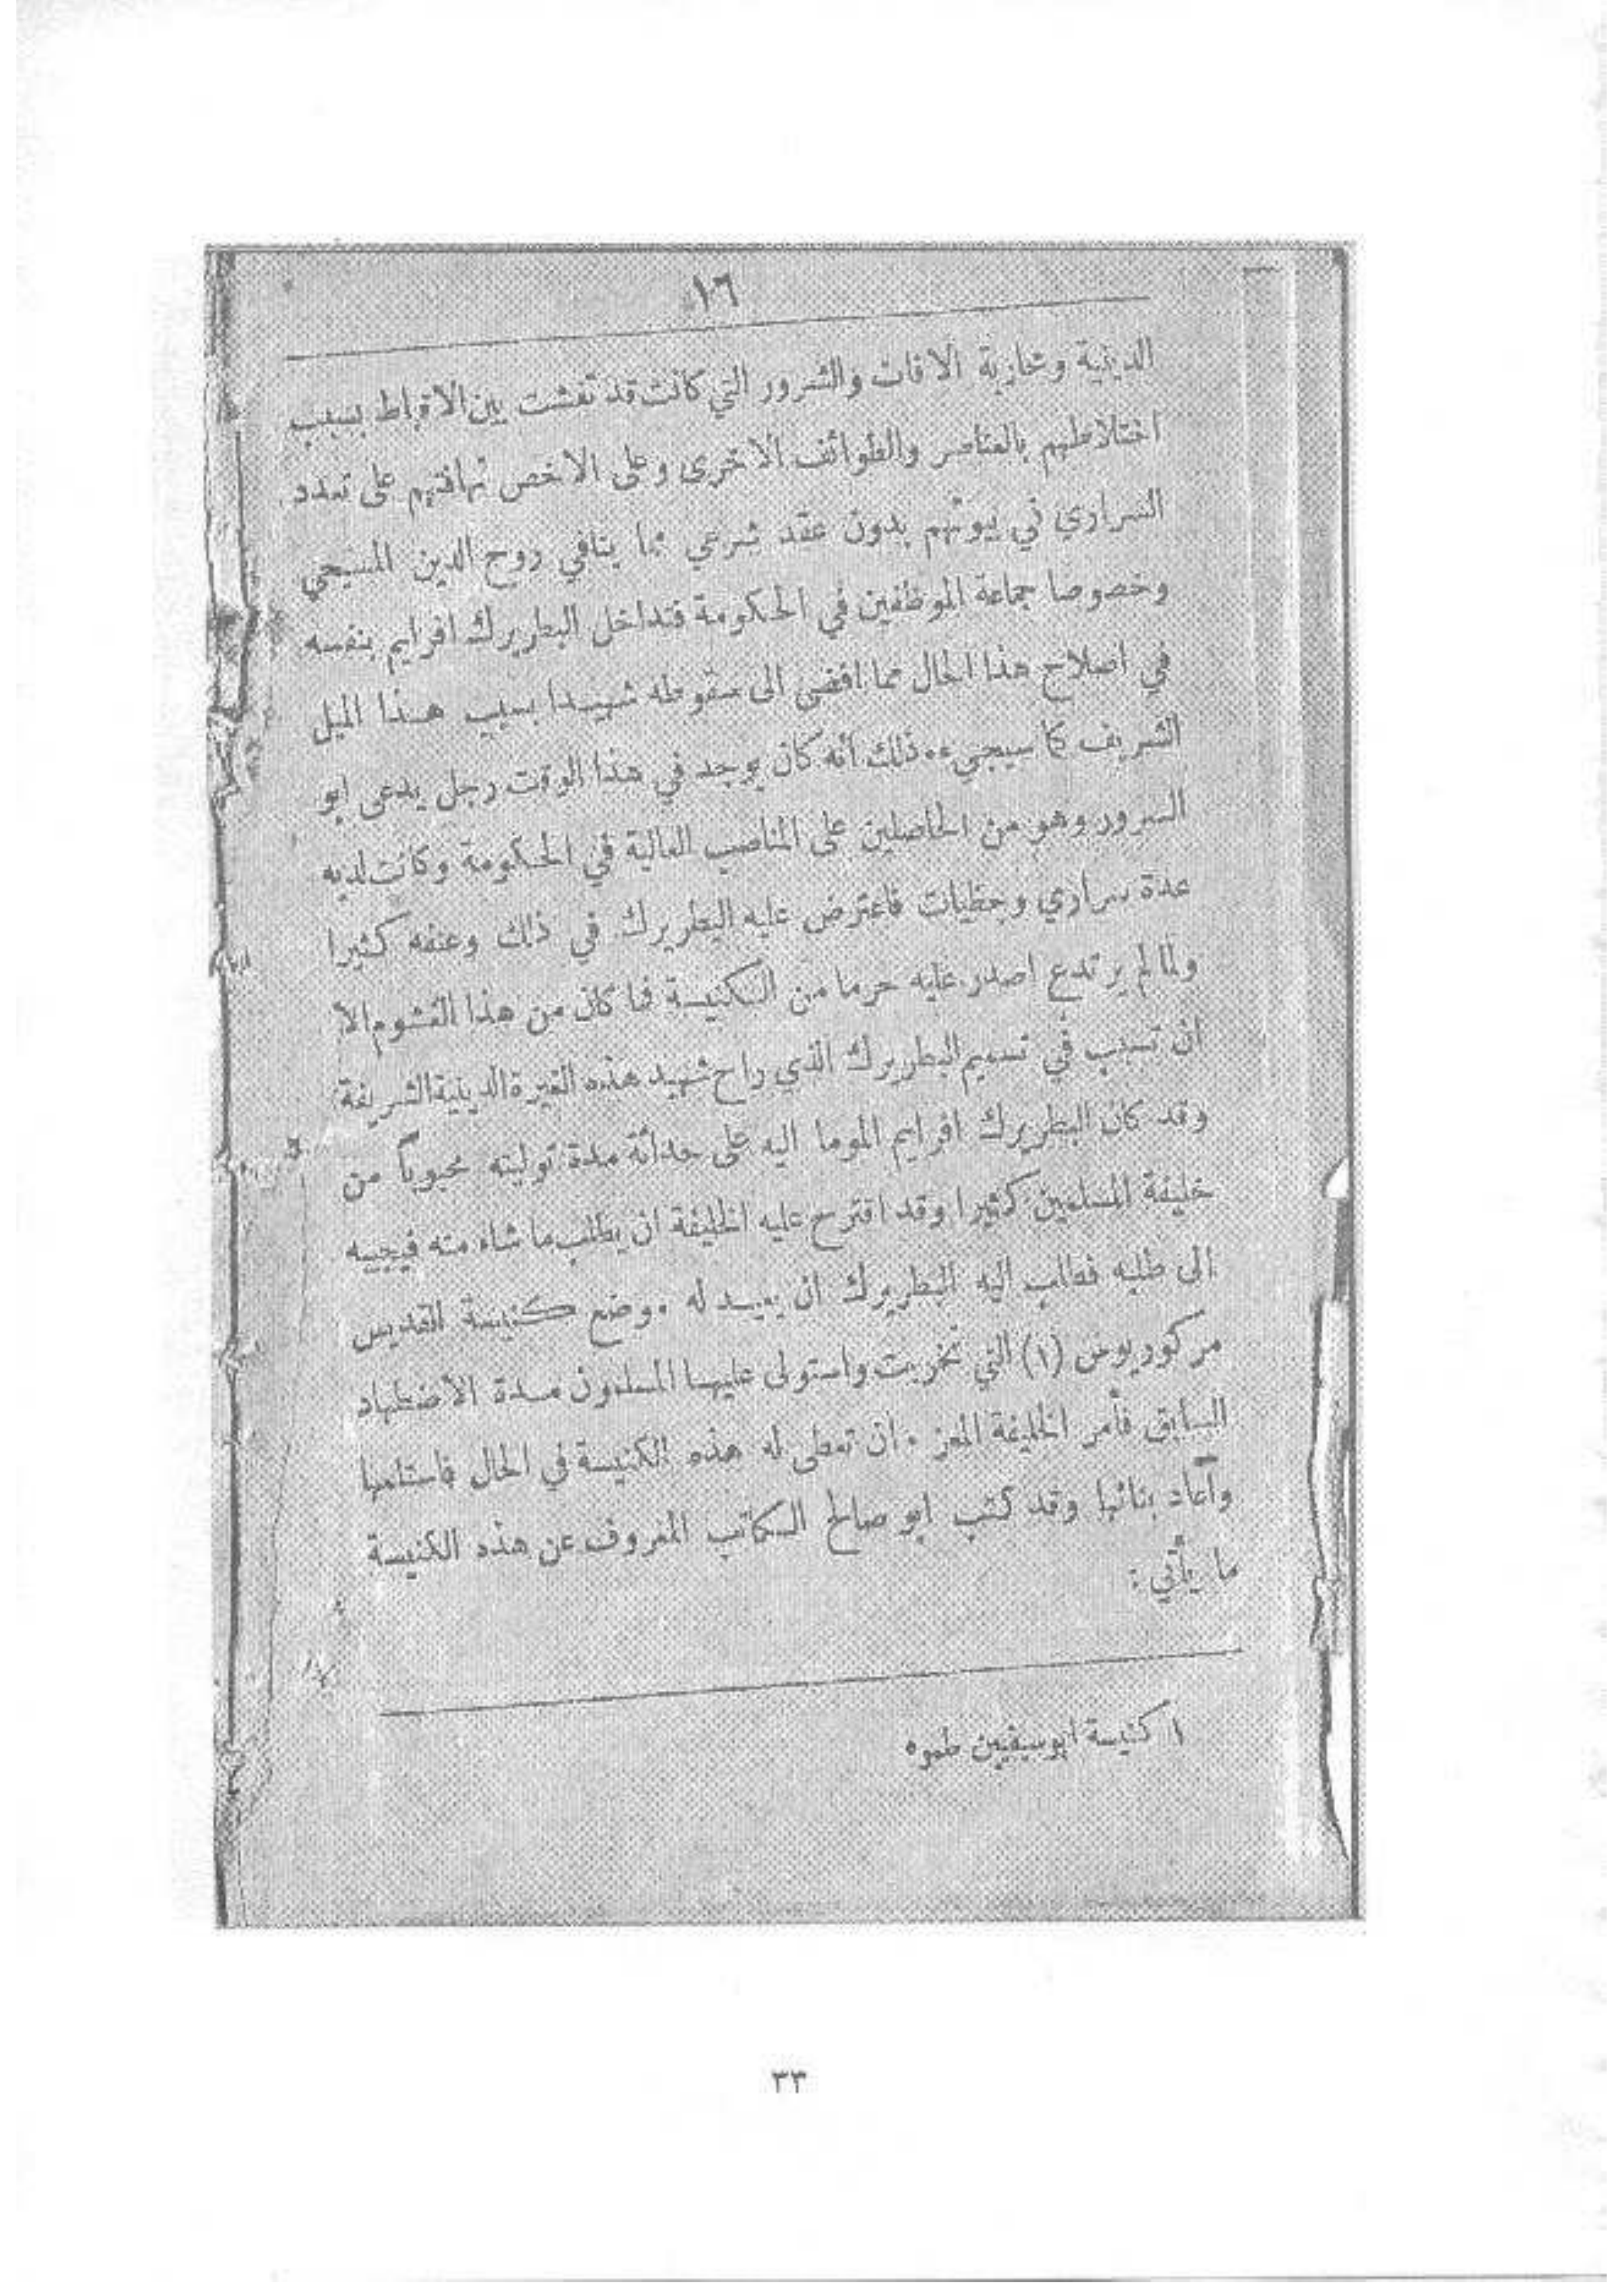 ١٦
الدينية ومحاربة الافات والشرور التي كانت قد تفشت بين الاقباط بسبب
اختلاطهم بالعناصر والطوائف الاخرى وعلى الاخص تهافتهم على تعدد
السراري في بيوتهم بدون عقد شرعي مما ينافي روح الدين المسيحي
وخصوصا جماعة الموظفين في الحكومة فتداخل البطريرك افرايم بنفسه
في اصلاح هذا الحال مما افضى الى سقوطه شهيدا بسبب هذا الميل
الشريف كما سيجيء. ذلك أنه كان يوجد في هذا الوقت رجل يدعى ابو
السرور وهو من الحاصلين على المناصب العالية في الحكومة وكانت لديه
عدة سراري وحظيات فاعترض عليه البطريرك في ذلك وعنفه كثيرا
ولما لم يرتدع اصدر عليه حرما من الكنيسة فما كان من هذا الغشوم الا
ان تسبب في تسميم البطريرك الذي راح شهيد هذه الغيرة الدينية الشريفة
وقد كان البطريرك افرايم الموما اليه على حداثة مدة توليته محبوباً من
خليفة المسلمين كثيرا وقد اقترح عليه الخليفة ان يطلب ما شاء منه فيجيبه
الى طلبه فطلب اليه البطريرك ان يعيد له موضع كنيسة القديس
مركوريوس (١) التي تخربت واستولى عليها المسلمون مدة الاضطهاد
السابق فأمر الخليفة المعز. ان تعطى له هذه الكنيسة في الحال فاستلمها
وأعاد بنائها وقد كتب ابو صالح الكاتب المعروف عن هذه الكنيسة
ما يأتي :
١ كنيسة ابو سيفين طموه
٣٣